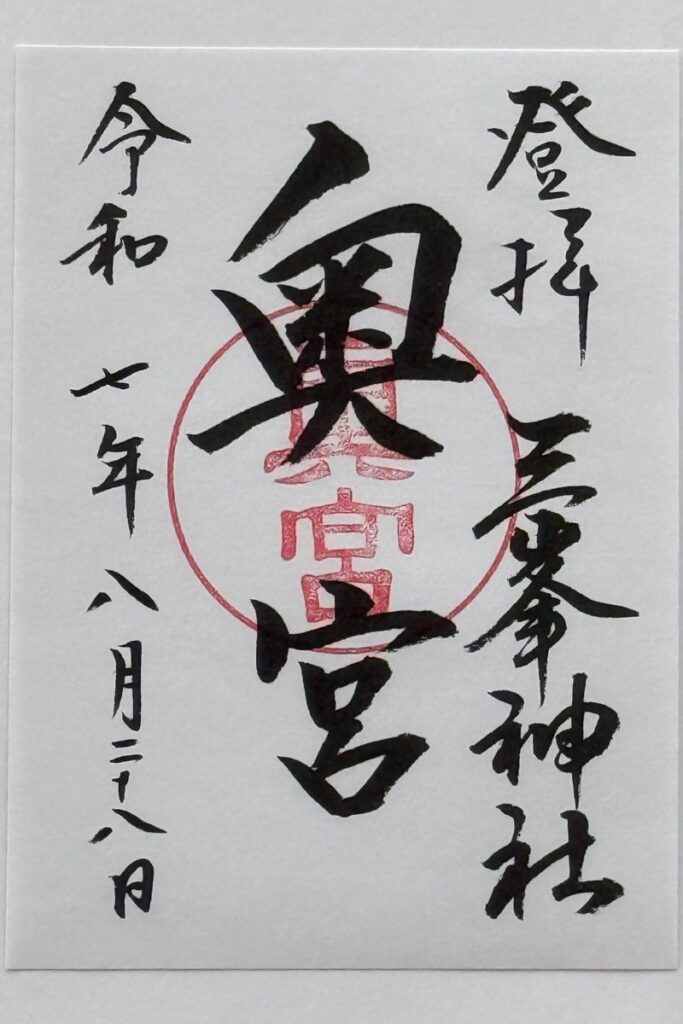 登拝 三峯神社
奥宮
奥宮
令和 七年 八月二十八日